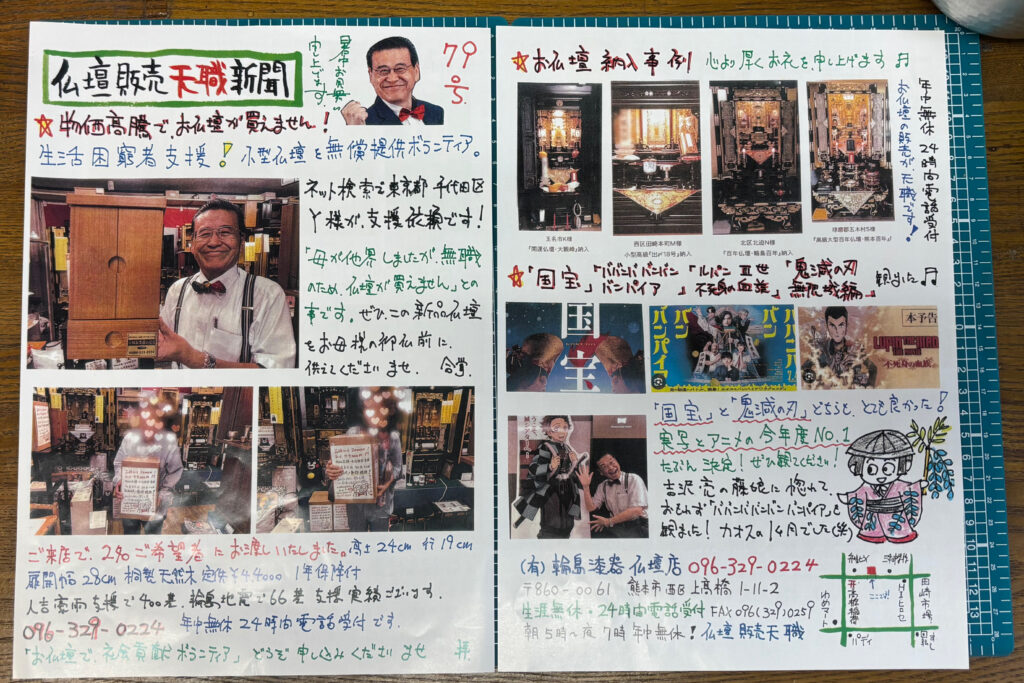 仏壇販売天職新聞
暑中お見舞い
申し上げます。
79
号
☆物価高騰で、お仏壇が買えません!
生活困窮者支援!小型仏壇を無償提供ボランティア。
ネット検索で東京都千代田区
Y様が、支援依頼です!
「母が他界しましたが、無職
のため、仏壇が買えません」との
事です。ぜひ、この新品仏壇
をお母様の御仏前に、
供えてくださいませ。合掌
ご来店で、2名ご希望者にお渡しいたしました。高さ24cm 行19cm
扉開幅28cm 桐製天然木 定価¥44000 1年保障付
人吉豪雨支援で400基、輪島地震で66基 支援実績ございます。
096-329-0224 年中無休24時間電話受付です。
「お仏壇で、社会貢献ボランティア」どうぞ申し込みくださいませ 拝
☆お仏壇納入事例 心より厚くお礼を申し上げます♬
年中無休 24時間電話受付
お仏壇の販売が天職です!
玉名市K様
『開運仏壇・大観峰』納入
西区田崎本町M様
小型高級『出〆18号』納入
北区北迫N様
『百年仏壇・輪島百年』納入
球磨郡五木村S様
『高級大型百年仏壇・熊本百年』
☆「国宝」「ババンババンバン バンパイア」「ルパン三世 不死身の血族」「鬼滅の刃 無限城編」観ました♬
国宝
バンパイア
バババン
本予告
LUPIN THE IIIRD
不死身の血族
「国宝」と「鬼滅の刃」どちらも、とても良かった!
実写とアニメの今年度NO.1
たぶん決定!ぜひ観てください!
吉沢亮の藤娘に惚れて、
おもわず「ババンババンバンバンパイア」も
観ました!カオスの1ヶ月でした(笑)
(有)輪島漆器仏壇店 096-329-0224
〒860-0061 熊本市西区上高橋1-11-2
生涯無休・24時間電話受付 FAX096(329)0259
朝5時〜夜7時 年中無休!仏壇販売天職
ここです!
ゆめマート
田崎市場